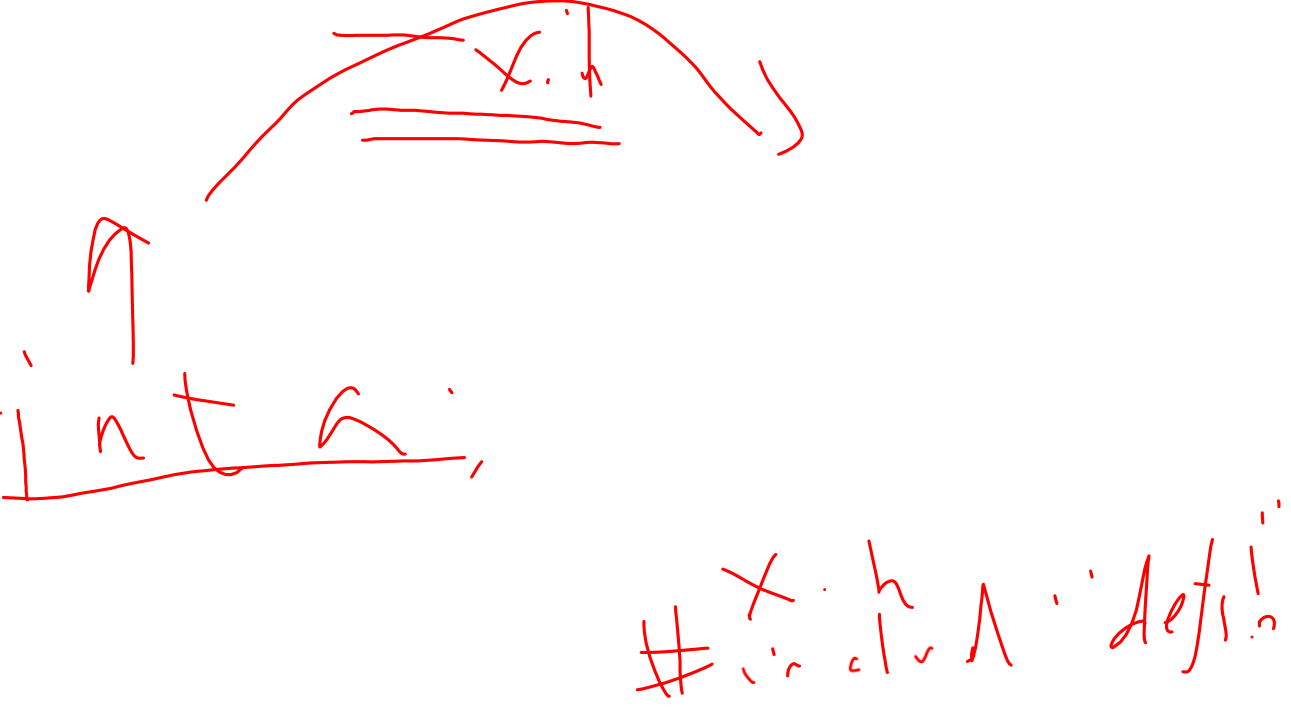 x.h
int a;
x.h
#includ "defs.h"